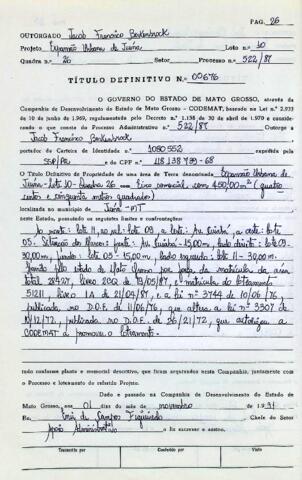 PAG. 26
OUTORGADO Jacob Francisco Berkembrock
Projeto Expansão Urbana de Juína Lote n.º 10
Quadra n.º 26 Setor Processo n.º 522/87
TÍTULO DEFINITIVO N.º 00676
O GOVERNO DO ESTADO DE MATO GROSSO, através da
Companhia de Desenvolvimento do Estado de Mato Grosso - CODEMAT, baseado na Lei n.º 2.933
de 10 de junho de 1969, regulamentado pelo Decreto n.º 1.138 de 30 de abril de 1970 e conside-
rando o que consta do Processo Administrativo n.º 522/87 Outorga a
Jacob Francisco Berkembrock
portador da Carteira de Identidade n.º 1080552 expedida pela
SSP/PR e do CPF n.º 118.138.799-68
O Título Definitivo de Propriedade de uma área de Terra denominada Expansão Urbana de
Juína - lote 10 - Quadra 26 com Eixo comercial, com 450,00m² (quatro
centos e cinquenta metros quadrados)
localizada no município de Juína - MT
neste Estado, passando os seguintes limites e confrontações:
Ao norte: lote 11, ao sul: lote 09, a leste: Av. Cuiabá, a oeste: lote
05. Situação do terreno: frente: Av. Cuiabá - 15,00m, lado direito: lote 09-
30,00m, fundo: lote 05 - 15,00m, lado esquerdo: lote 11 - 30,00m.
pelo estado de Mato Grosso por força da matrícula da área
total 28427, livro 2CQ de 19/05/87, e matrícula do loteamento
51211, livro 1A de 21/04/87, e a lei nº 3744 de 10/06/76,
publicada no D.O.E. de 11/06/76, que altera a lei nº 3307 de
18/12/72, publicada no D.O.E. de 26/21/72, que autoriza a
CODEMAT a promover o loteamento.
tudo conforme planta e memorial descritivo, que foram arquivados nesta Companhia, juntamente com
o Processo e loteamento do referido Projeto.
Dado e passado na Companhia de Desenvolvimento do Estado de
Mato Grosso, aos 01 dias do mês de novembro de 1.991
Eu, Enir de Campos Figueiredo Chefe do Setor
Apoio Administrativo o fiz escrever e assino.
Transcrito por Conferido por Visto